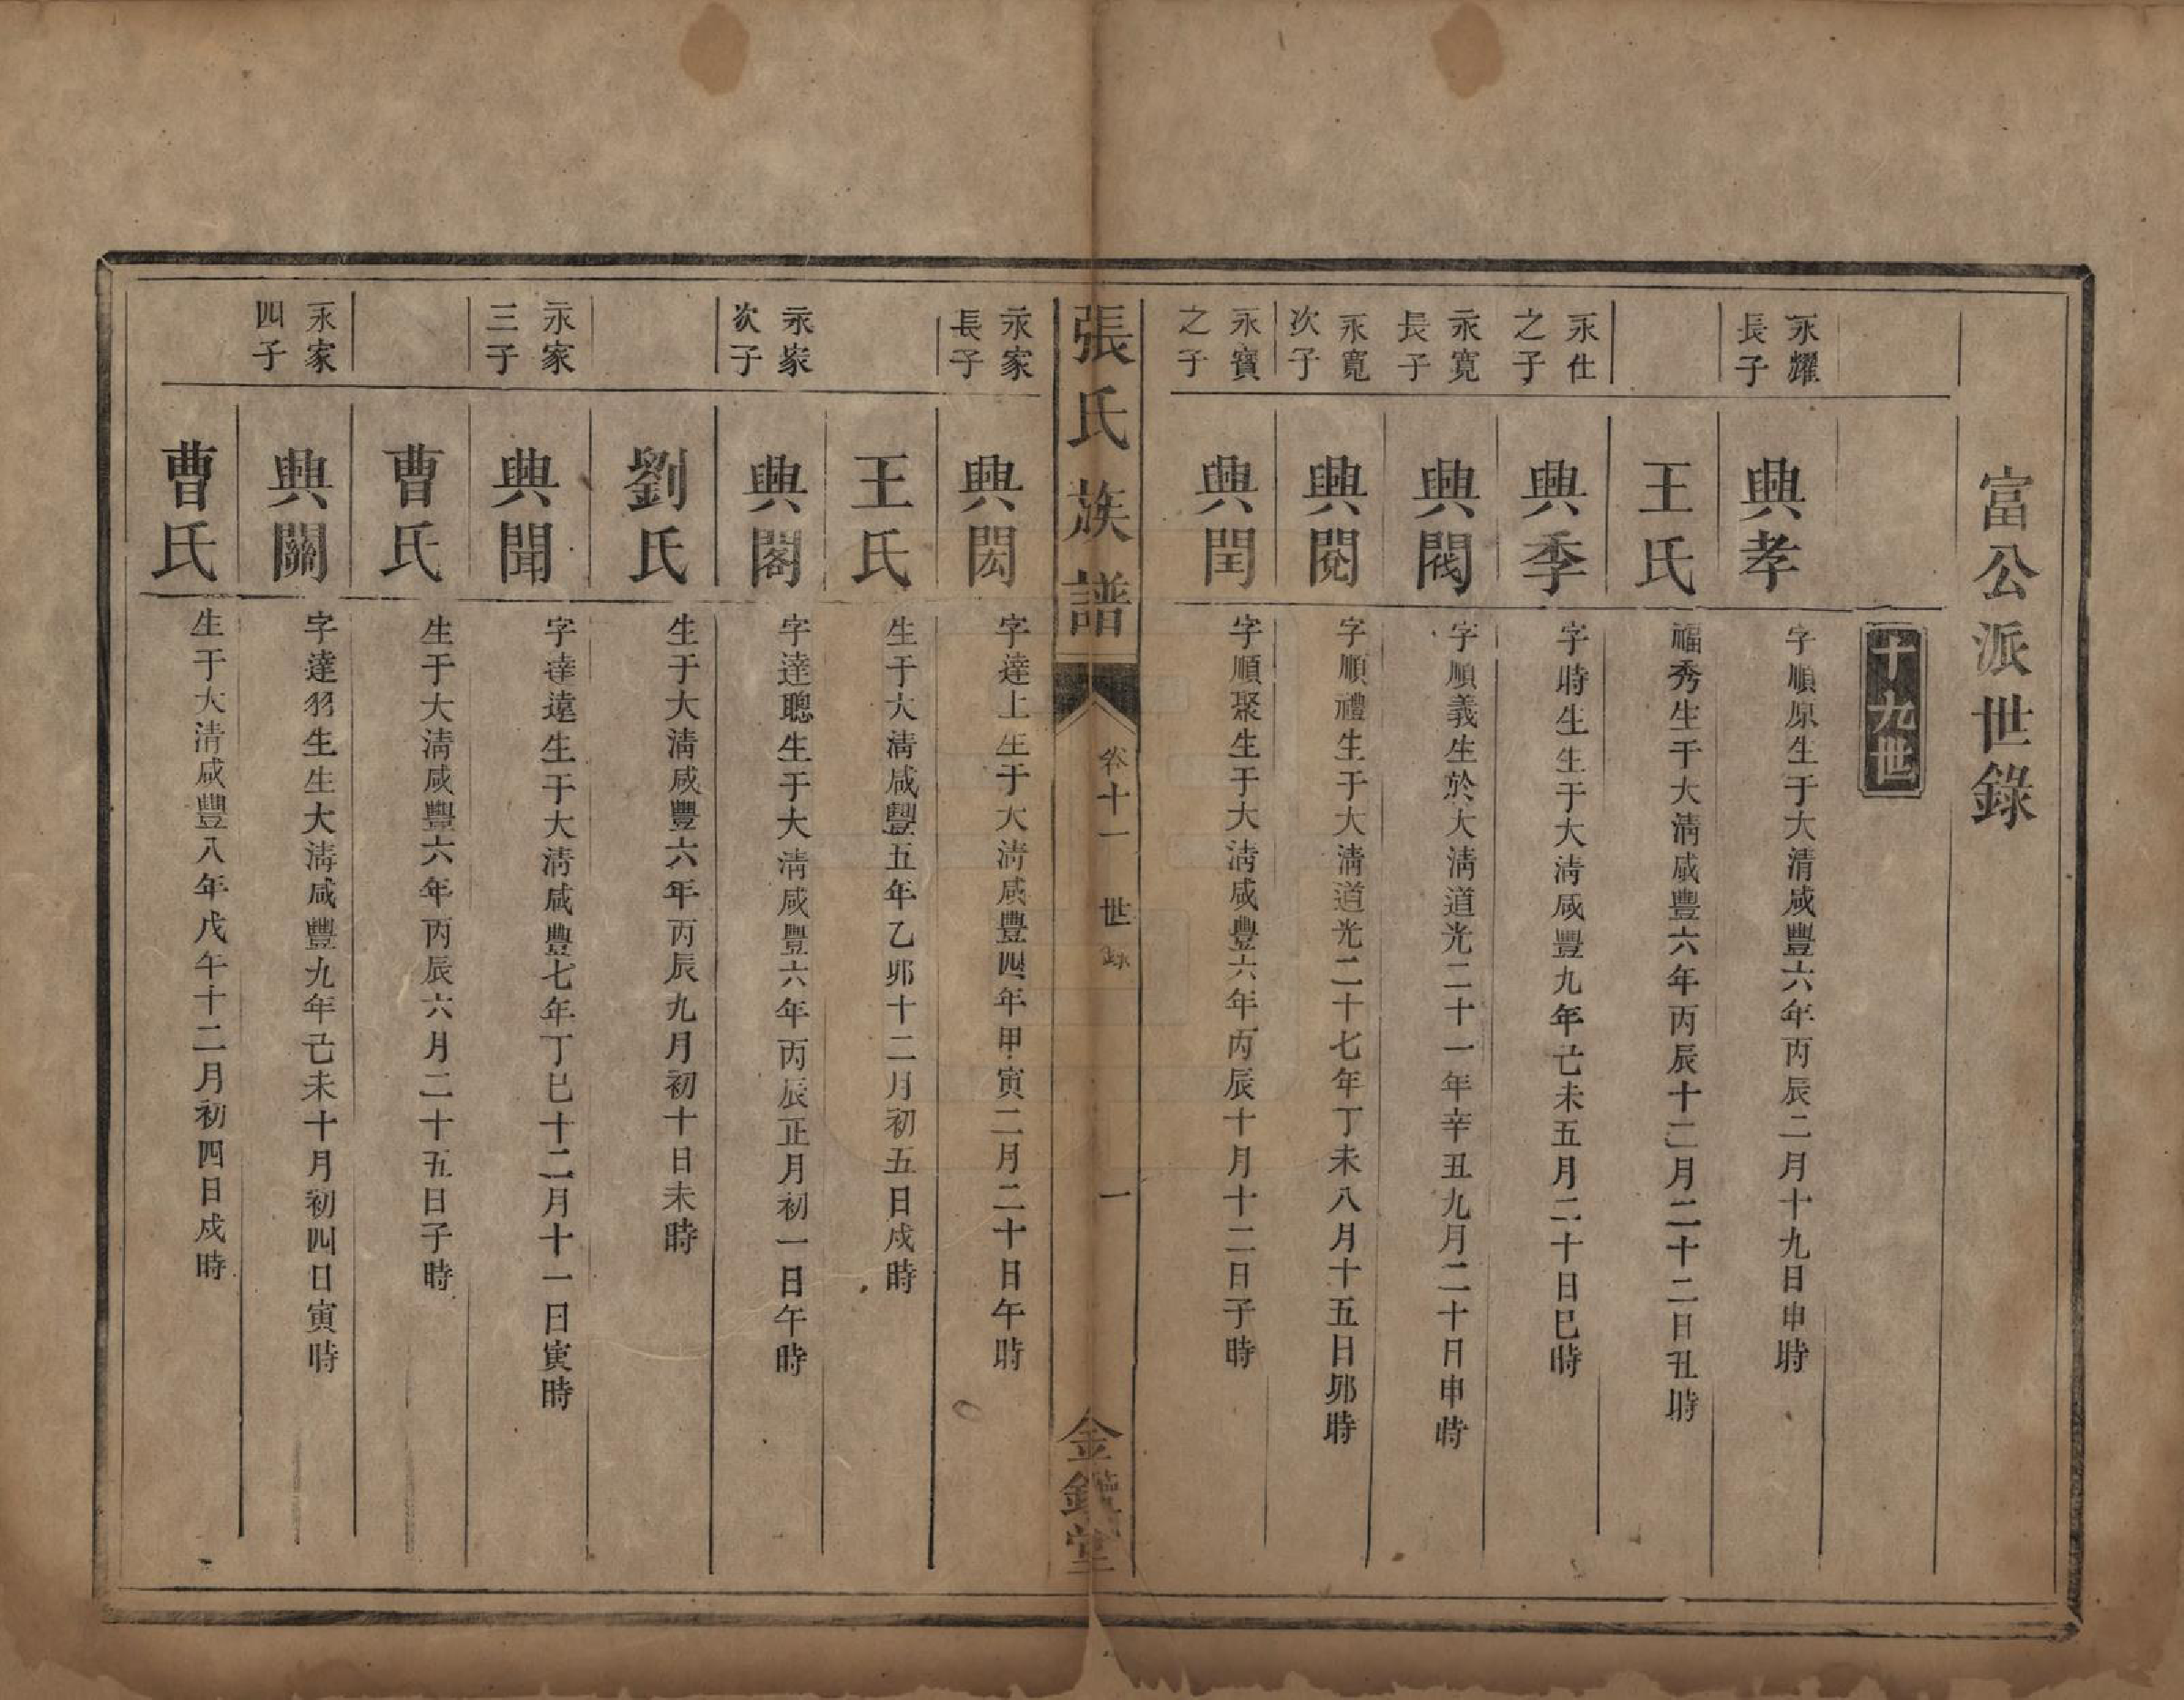 富公派世錄
十九世
永耀長子
興孝
字順原生于大清咸豐六年丙辰二月十九日申時
王氏
福秀生于大清咸豐六年丙辰十二月二十二日丑時
永仕之子
興季
字時生生于大清咸豐九年己未五月二十日巳時
永寬長子
興閥
字順義生於大清道光二十一年辛丑九月二十日申時
永寬次子
興閱
字順禮生于大清道光二十七年丁未八月十五日卯時
永寶之子
興閏
字順聚生于大清咸豐六年丙辰十月十二日子時
張氏族譜
卷十一
世錄
一
金鑑堂
永家長子
興閎
字達上生于大清咸豐四年甲寅二月二十日午時
王氏
生于大清咸豐五年乙卯十二月初五日戍時
永家次子
興閣
字達聰生于大清咸豐六年丙辰正月初一日午時
劉氏
生于大清咸豐六年丙辰九月初十日未時
永家三子
興聞
字達遠生于大清咸豐七年丁巳十二月十一日寅時
曹氏
生于大清咸豐六年丙辰六月二十五日子時
永家四子
興關
字達羽生生大清咸豐九年己未十月初四日寅時
曹氏
生于大清咸豐八年戊午十二月初四日戍時